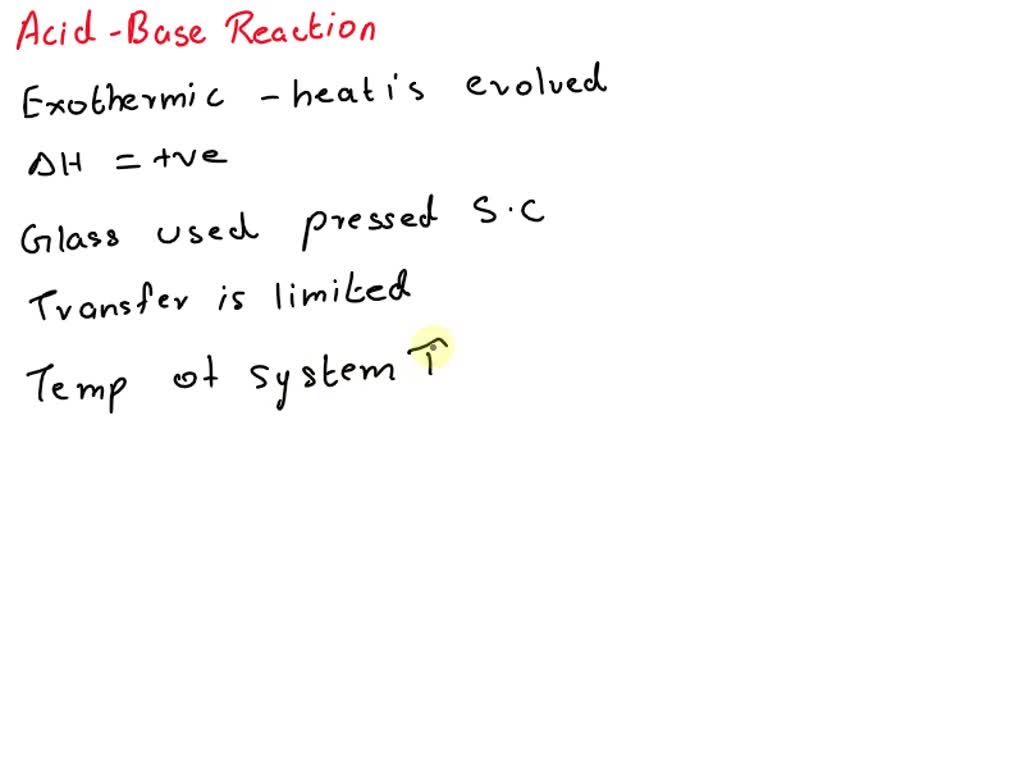 Acid-Base Reaction
Exothermic - heat is evolved
ΔH = +ve
Glass used pressed S.C
Transfer is limited
Temp of system ↑